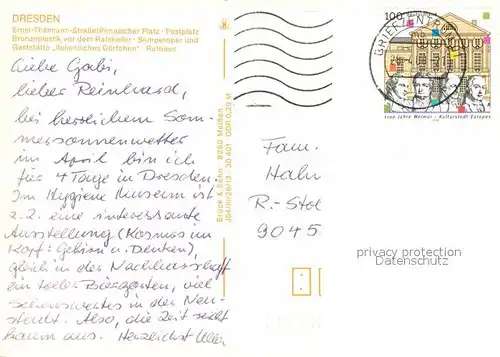 DRESDEN
Ernst-Thälmann-Straße/Pirnaischer Platz · Postplatz
Bronzeplastik vor dem Ratskeller · Semperoper und
Gaststätte „Italienisches Dörfchen“ · Rathaus
Liebe Gabi,
lieber Reinhard,
bei herrlichem Som-
mersonnenwetter
im April bin ich
für 4 Tage in Dresden.
Im Hygiene Museum ist
z. Z. eine interessante
Ausstellung (Kosmos im
Kopf: Gehirn u. Denken),
gleich in der Nachbarschaft
ein toller Biergarten, viel
Sehenswertes in der Neu-
stadt. Also, die Zeit reicht
kaum aus. Herzlichst
Bruck & Sohn · 8250 Meißen
30 401 DDR 0,39 M
BRIEFZENTRUM
100
1100 Jahre Weimar · Kulturstadt Europas
Fam.
Hahn
R.-Stol
9045
privacy protection
Datenschutz